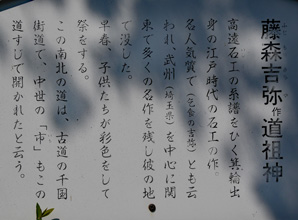 藤森吉弥作道祖神
高遠石工の系譜をひく箕輪出
身の江戸時代の石工の作。
名人気質で（色食の吉弥）とも云
われ、武州（埼玉県）を中心に関
東で多くの名作を残し彼の地
で没した。
早春、子供たちが彩色をして
祭をする。
この南北の道は、古道の千国
街道で、中世の「市」もこの
道すじで開かれたと云う。